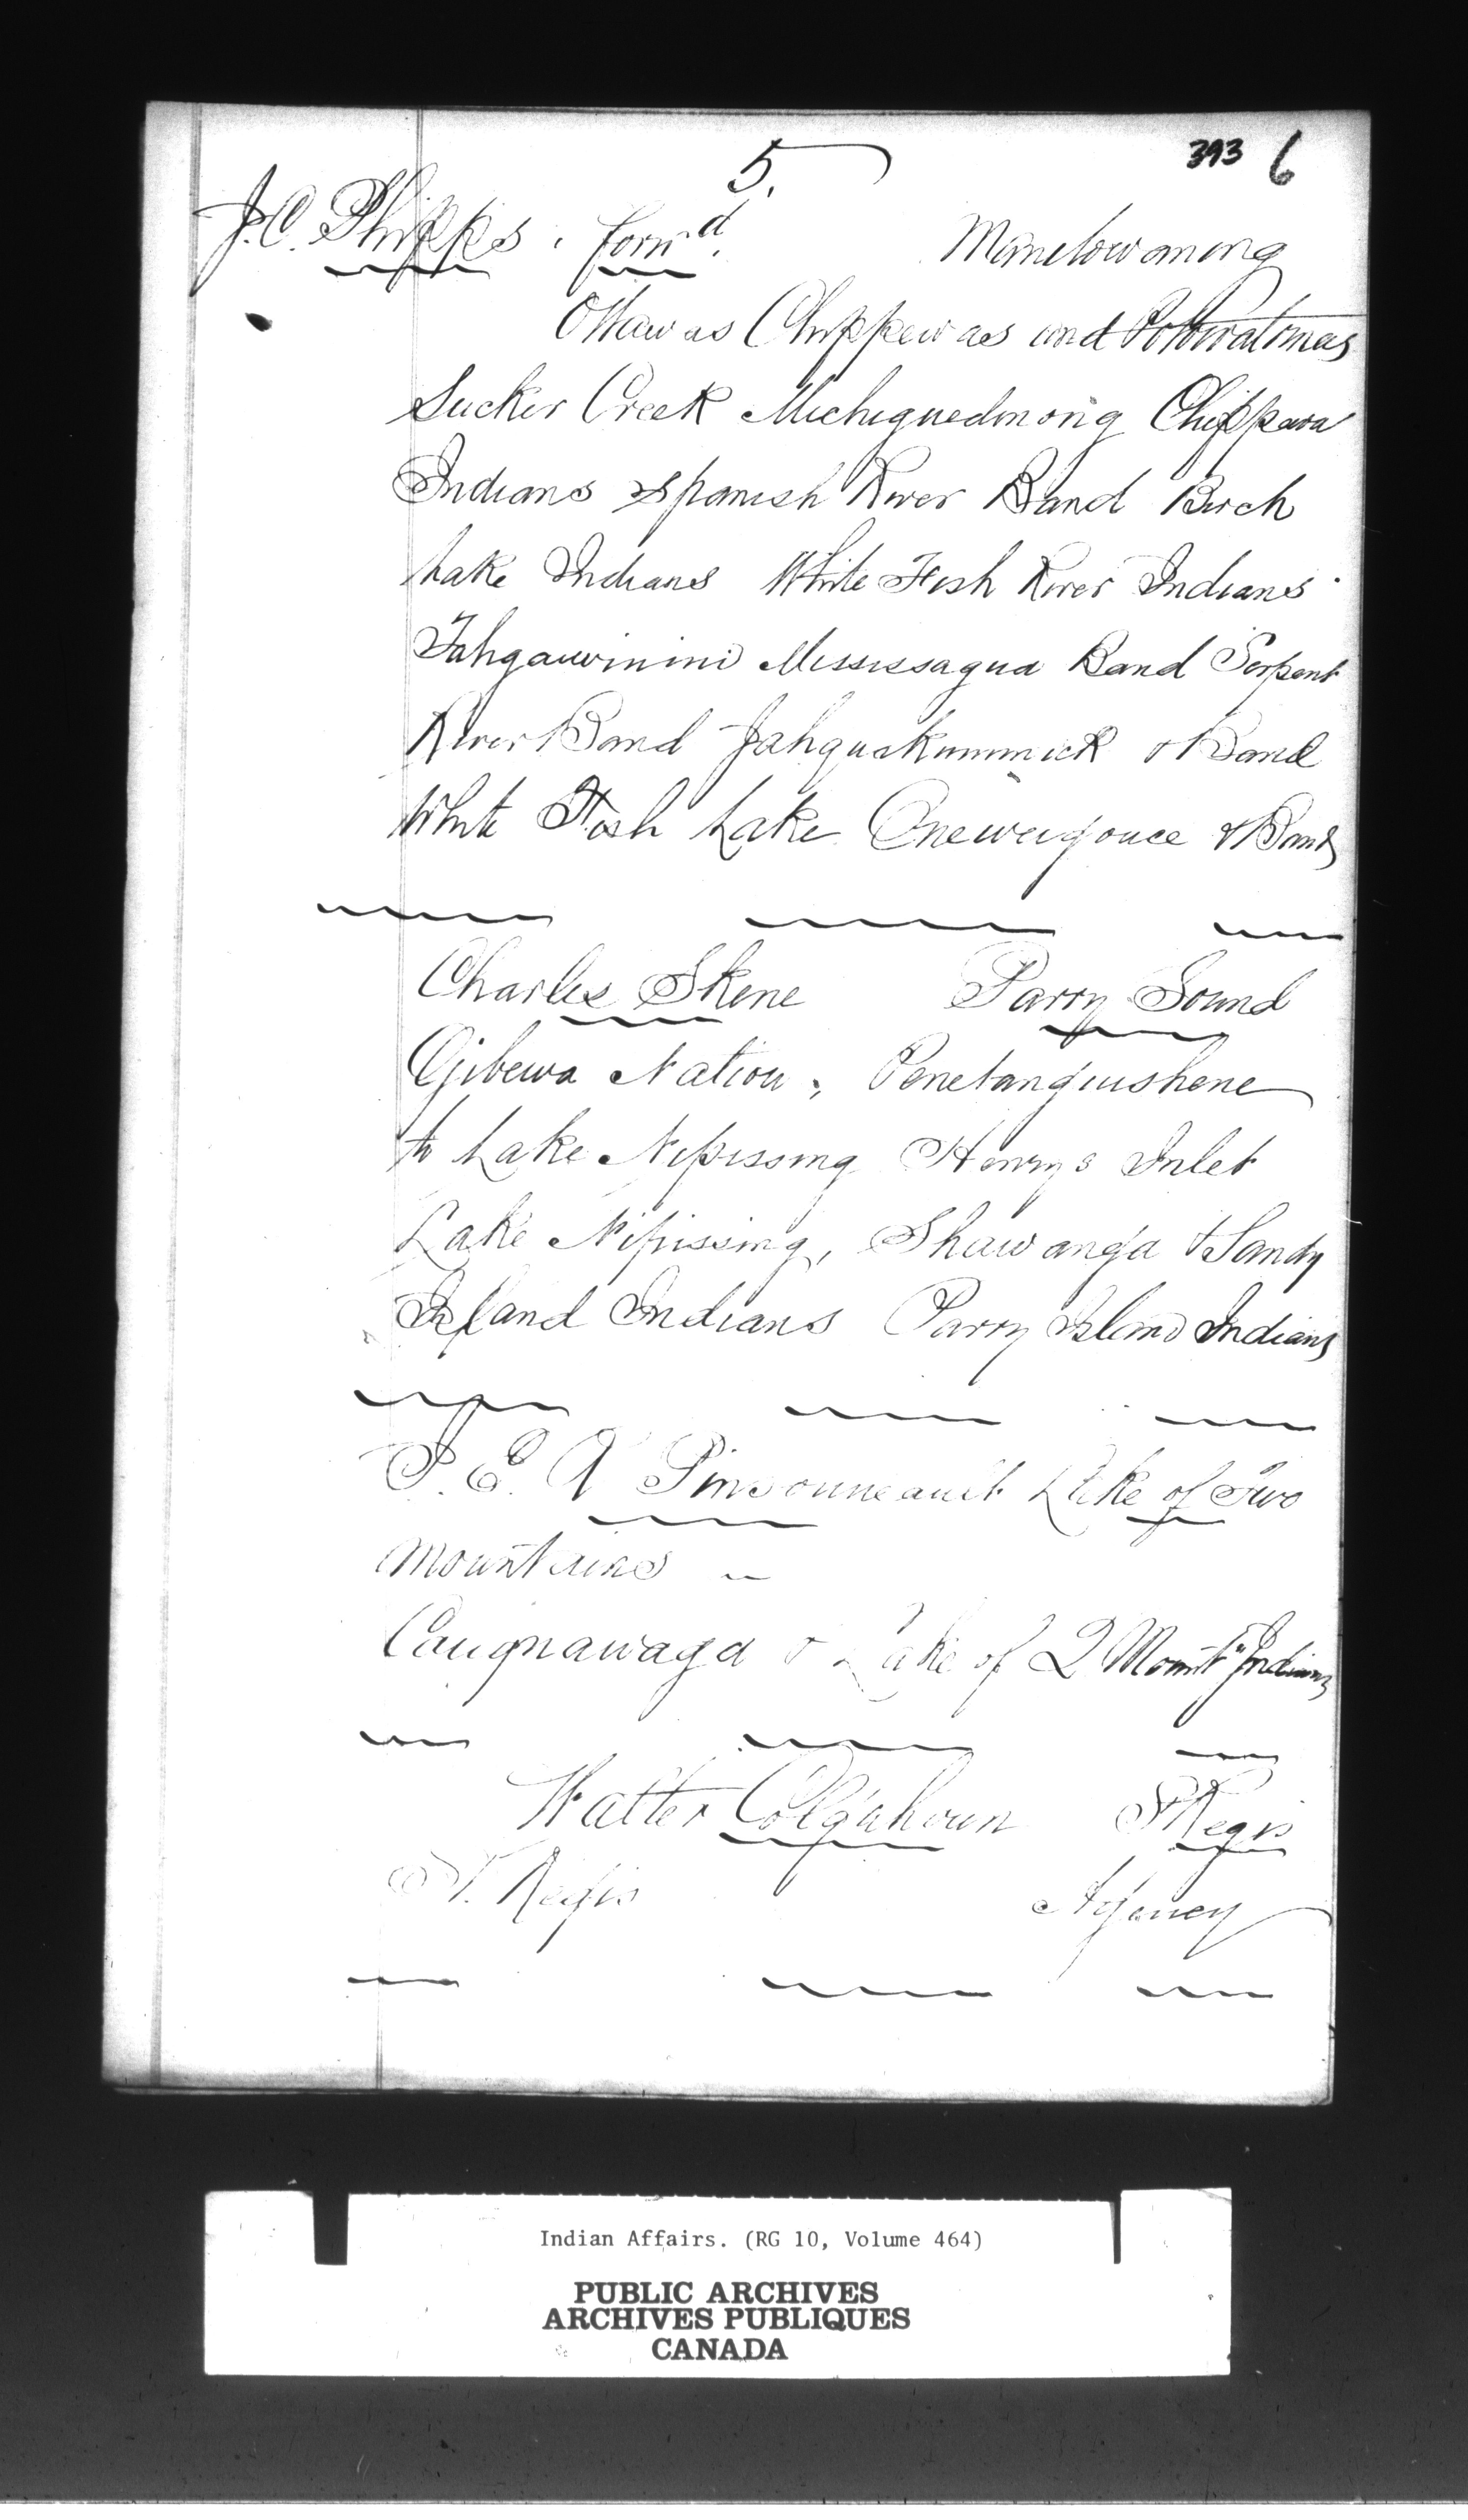 5.
393 6
J.C. Phipps. Forw'd. Manetowaning
Ottawas Chippewas and Pottowatomas
Sucker Creek Michiguedinong Chippawa
Indians Spanish River Band Birch
Lake Indians White Fish River Indians
Tahgauwinini Mississagua Band Serpent
River Band Jahguskummick & Band
White Fish Lake Onewegonce & Band
Charles Skene Parry Sound
Ojibewa Nation, Penetanguishene
to Lake Nipissing Henrys Inlet
Lake Nipissing, Shawanga & Sandy
Island Indians Parry Island Indians
Pinsonneault Lake of Two
Mountains
Caugnawaga & Lake of 2 Mount" Indians
Walter Colquhoun St Regis
St. Regis Agency
Indian Affairs. (RG 10, Volume 464)
PUBLIC ARCHIVES
ARCHIVES PUBLIQUES
CANADA